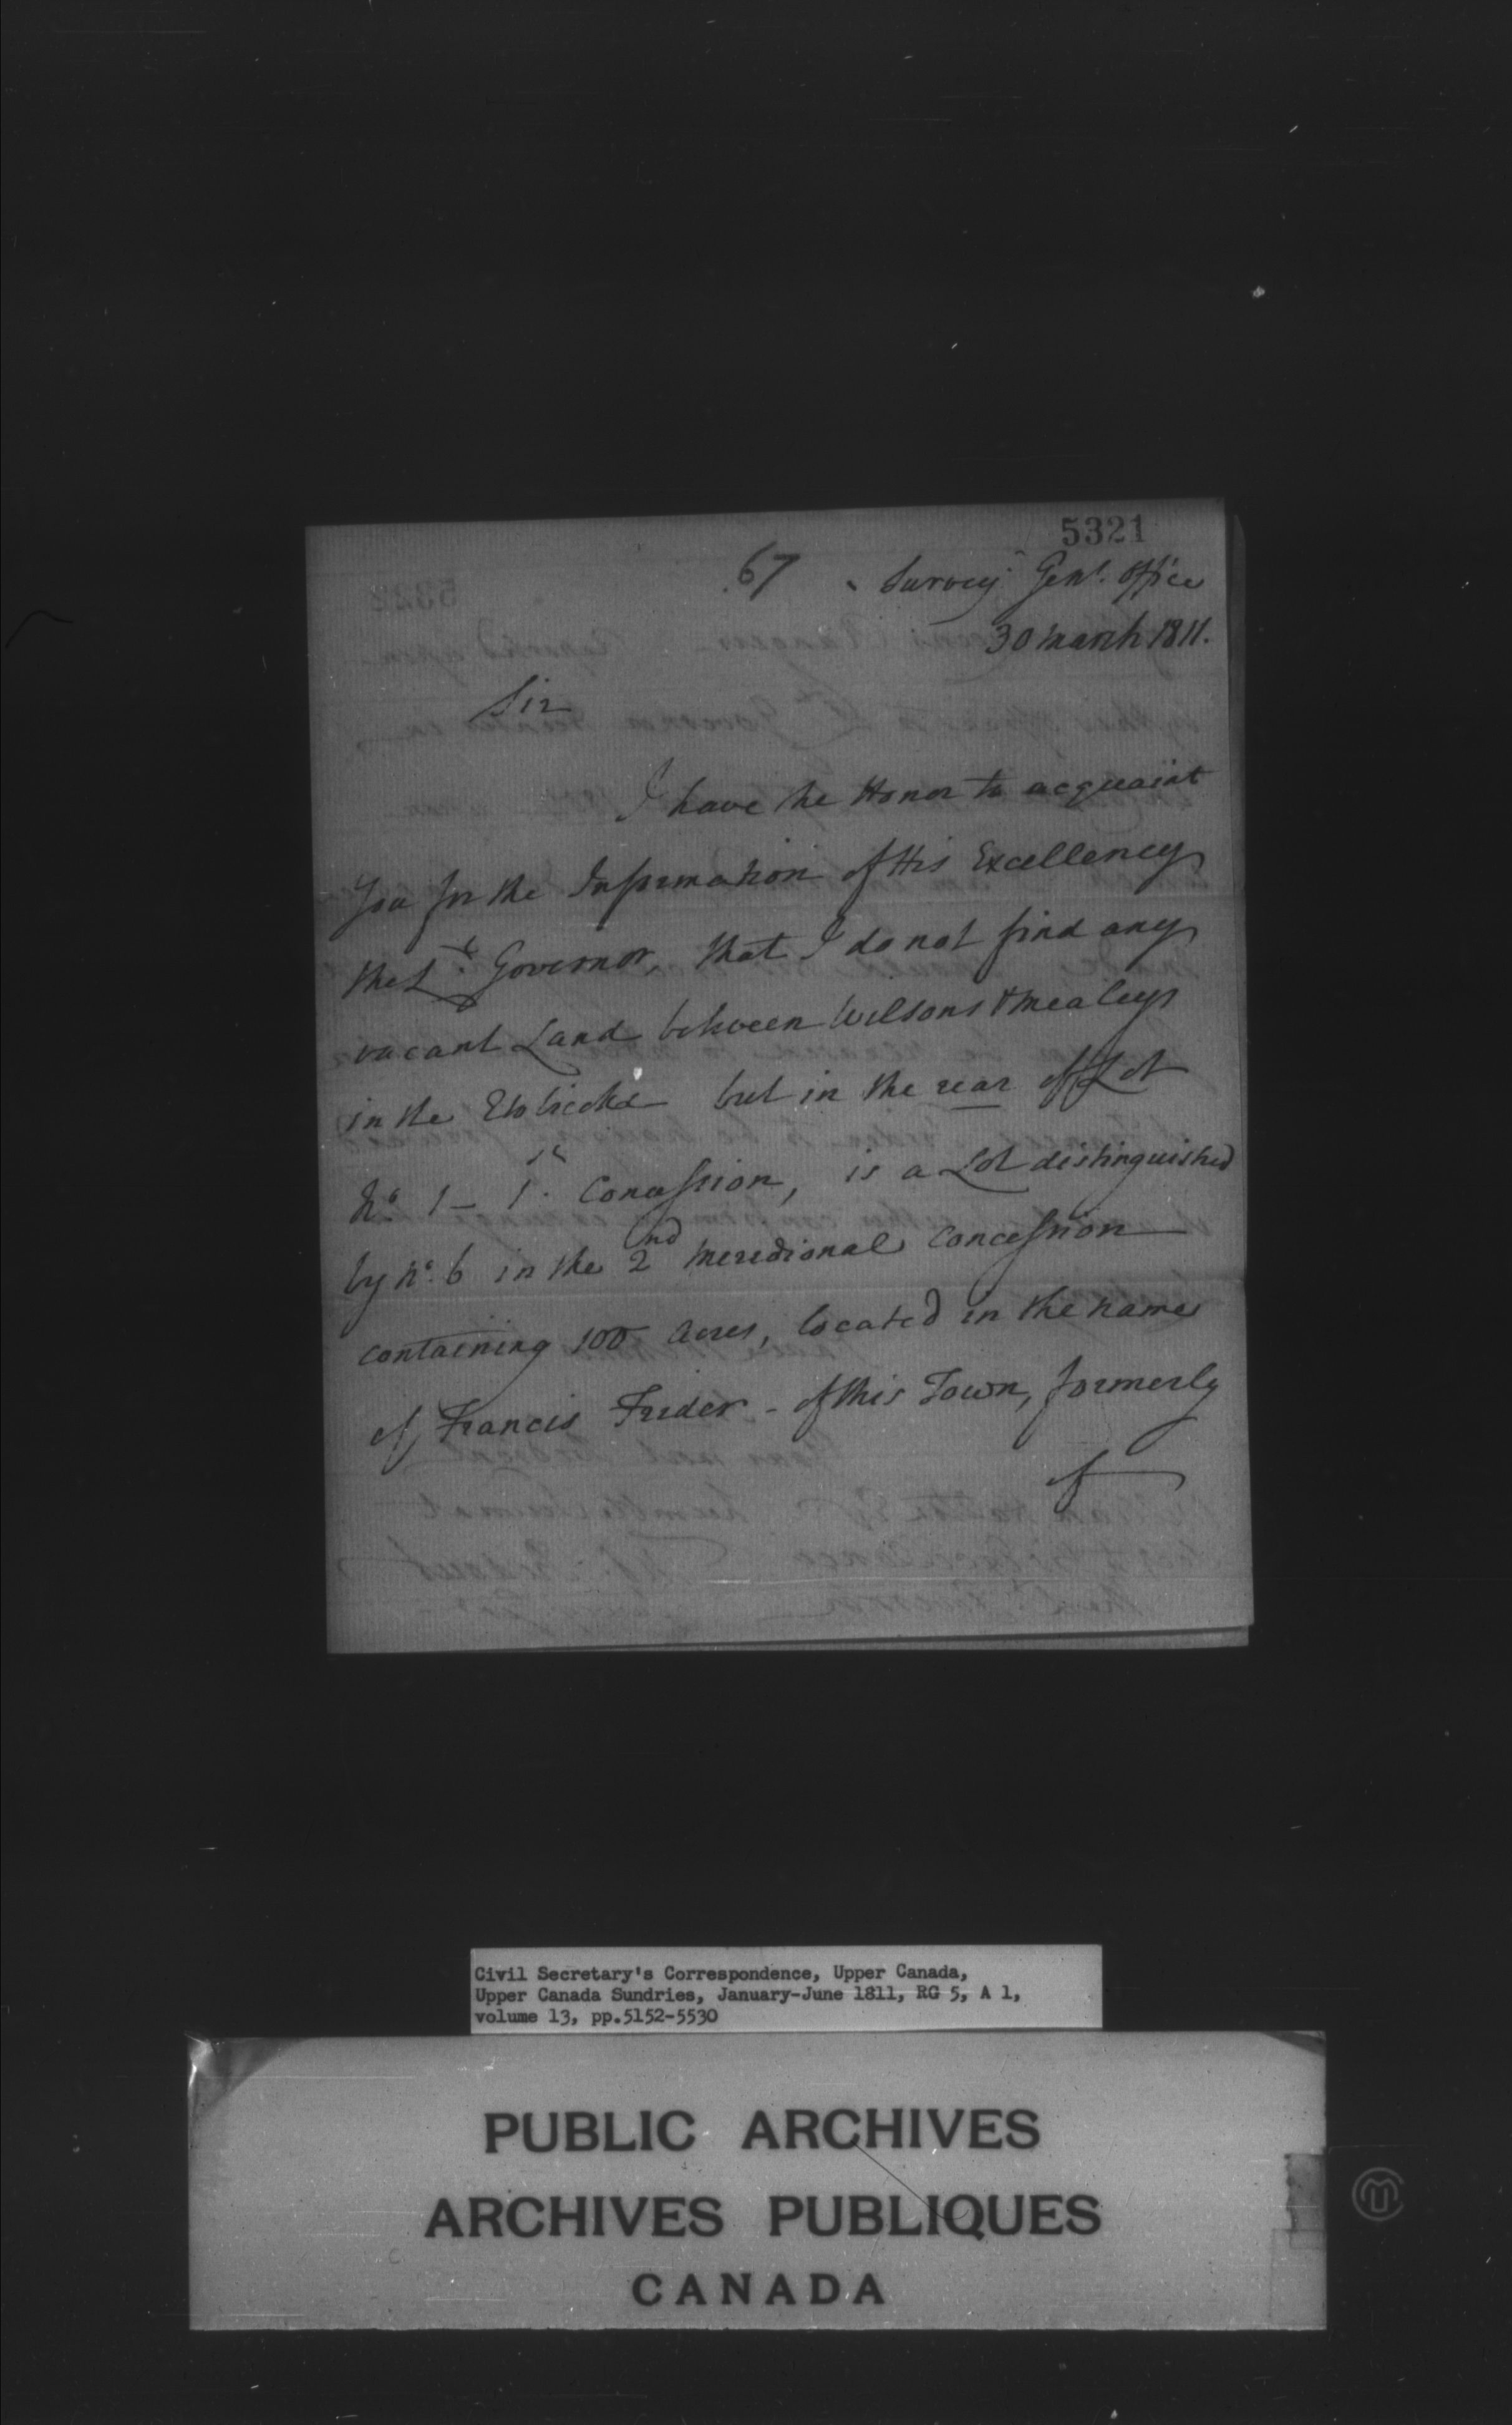 5321
67
Survey Genl. Office
30 March 1811.
Sir
I have the Honor to acquaint
You for the Information of His Excellency
the Lt. Governor, that I do not find any
vacant Land between Wilsons & Mealeys
in the Etobicoke but in the rear of Lot
No. 1 – 1st. Concession, is a Lot distinguished
by No. 6 in the 2nd Meridional Concession
containing 100 Acres, located in the name
of Francis Frider - of this Town, formerly
of
Civil Secretary's Correspondence, Upper Canada,
Upper Canada Sundries, January-June 1811, RG 5, A 1,
volume 13, pp.5152-5530
PUBLIC ARCHIVES
ARCHIVES PUBLIQUES
CANADA